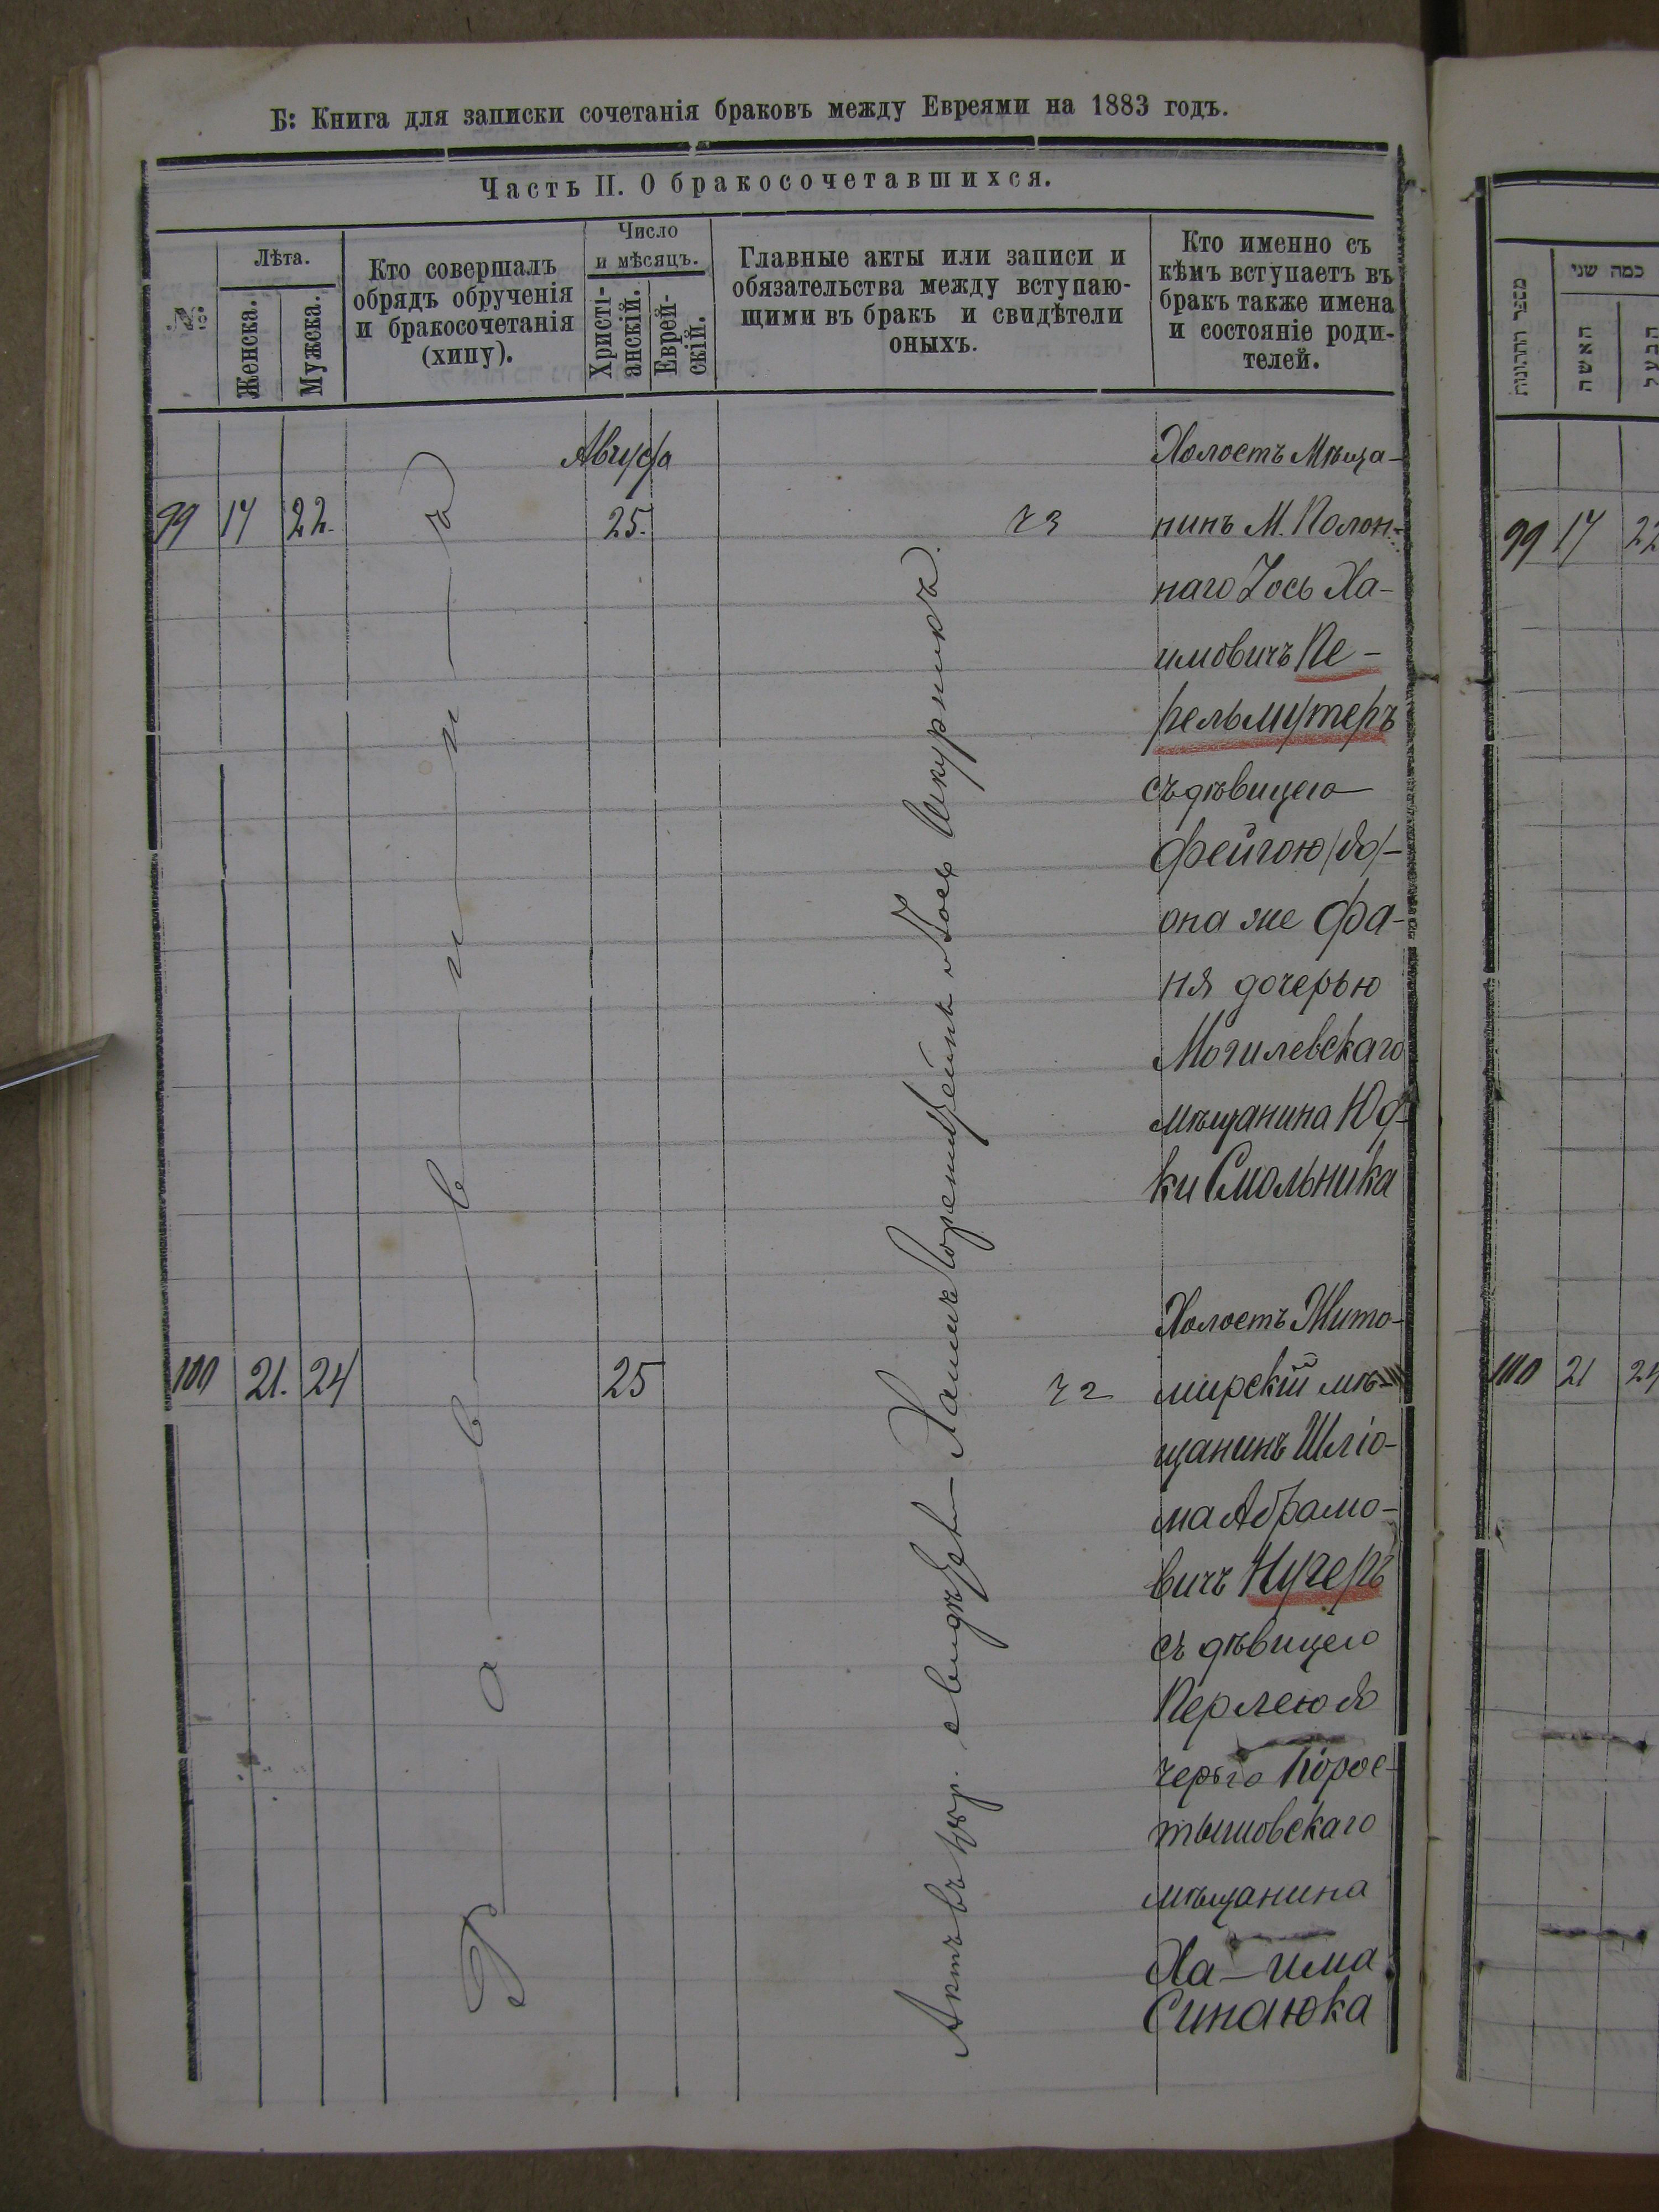 Б: Книга для записки сочетанія браковъ между Евреями на 1883 годъ.
Часть II. О бракосочетавшихся.
№
Лѣта.
Женска.
Мужеска.
Кто совершалъ
обрядъ обрученія
и бракосочетанія
(хипу).
Число
и мѣсяцъ.
Христі-
анскій.
Еврей-
скій.
Главные акты или записи и
обязательства между вступаю-
щими въ бракъ и свидѣтели
оныхъ.
Кто именно съ
кѣмъ вступаетъ въ
бракъ также имена
и состояніе роди-
телей.
Раввинъ
Актъ въ 40 р. свидѣт. Хаимъ и Шкурникъ.
Августа
99 17 22. 25. ч3
Холостъ Мѣща-
нинъ М. Полон-
наго Іось Ха-
имовичъ Пе-
рельмутеръ
съ дѣвицею
Фейгою /до/-
она же Фа-
ня дочерью
Могилевскаго
мѣщанина Юд-
ки Смольника
100 21. 24 25 ч2
Холостъ Жито-
мирскій мѣ-
щанинъ Шліо-
ма Абрамо-
вичъ Нугеръ
съ дѣвицею
Перлею до
черью Корос-
тышовскаго
мѣщанина
Ха-има
Синаюка
מספר החתונות
כמה שני
האשה
הבעל
99 17 22
100 21 24